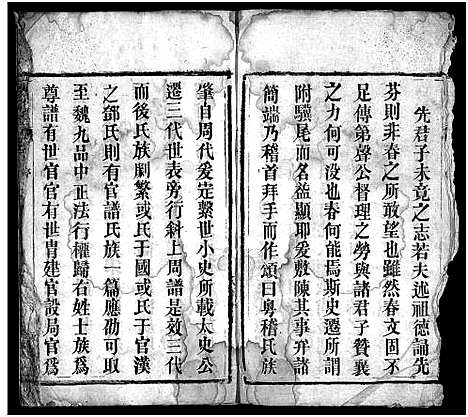 先君子未竟之志若夫述祖德誦先
芬則非春之所敢望也雖然春文固不
足傳弟聲公督理之勞與諸君子贊襄
之力何可没也春何能焉斯史遷所謂
附驥尾而名益顯耶爰敷陳其事并譸
簡端乃稽首拜手而作頌曰粵稽氏族
肇自周代爰定繫世小史所載太史公
遷三代世表旁行斜上周譜是效三代
而後氏族劇繁或氏于國或氏于官漢
之鄧氏則有官譜氏族一篇應劭可取
至魏九品中正法行權歸右姓士族為
尊譜有世官官有世胄建官設局官為